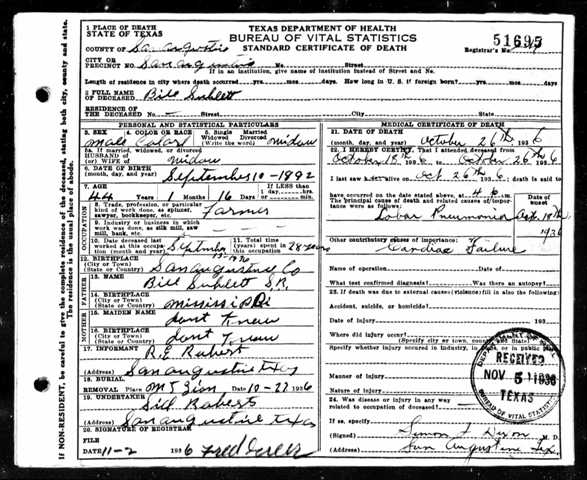 1 PLACE OF DEATH
STATE OF TEXAS
TEXAS DEPARTMENT OF HEALTH
BUREAU OF VITAL STATISTICS
STANDARD CERTIFICATE OF DEATH
51695
COUNTY OF San Augustine
Registrar's No.
CITY OR
PRECINCT NO. San Augustine No. Street
If in an institution, give name of institution instead of Street and No.
Length of residence in city where death occurred yrs. mos. days. How long in U. S. if foreign born? yrs. mos days
2 FULL NAME
OF DECEASED Bill Sublett
RESIDENCE OF
THE DECEASED No. Street City State
PERSONAL AND STATISTICAL PARTICULARS
3. SEX 4. COLOR OR RACE 5. Single Married
Widowed Divorced
(Write the word)
male Color widow
5a. If married, widowed or divorced
HUSBAND OF
(or) WIFE OF widow
6. DATE OF BIRTH
(month, day, and year) September 10-1892
7. AGE If LESS than
1 day, hrs.
44 Years 1 Months 16 Days or min.
8. Trade, profession, or particular
kind of work done, as spinner,
sawyer, bookkeeper, etc. Farmer
9. Industry or business in
which work was done, as silk mill, saw
mill, bank, etc.
10. Date deceased last
worked at this occupa-
tion (month and year) September
11. Total time
(years) spent in
this occupation 28 years
12. BIRTHPLACE
(City or Town)
(State or Country) San Augustine Co
13. NAME Bill Sublett SR.
14. BIRTHPLACE
(City or Town)
(State or Country) Mississippi
15. MAIDEN NAME dont Know
16. BIRTHPLACE
(City or Town)
(State or Country) dont Know
17. INFORMANT
(Address) San augustine texas
18. BURIAL
REMOVAL Place Mt Zion Date 10-27 1936
19. UNDERTAKER Sid Roberts
(Address) San augustine texas
20. SIGNATURE OF REGISTRAR
FILE
DATE 11-2 1936
MEDICAL CERTIFICATE OF DEATH
21. DATE OF DEATH
(month, day, and year) October 26th, 1936
22. I HEREBY CERTIFY, That I attended deceased from
October 15th 1936 to October 26th 1936
I last saw h alive on Oct. 26th 1936 death is said to
have occurred on the date stated above, at 4 p. m.
The principal cause of death and related causes of impor-
tance were as follows:
Date of onset
Lobar Pneumonia
1936
Other contributory causes of importance:
Cardiac Failure
Name of operation
What test confirmed diagnosis? Was there an autopsy?
23. If death was due to external causes (violence) fill in also the following:
Accident, suicide, or homicide?
Date of injury 193
Where did injury occur?
(Specify city or town, county, and State)
Specify whether injury occurred in industry, in home, or in public place
Manner of Injury
Nature of Injury
24. Was disease or injury in any way
related to occupation of deceased?
If so, specify
(Signed) M. D.
(Address) San Augustine Tex.
RECEIVED
NOV 5 1936
TEXAS
BUREAU OF VITAL STATISTICS
OCCUPATION
FATHER
MOTHER
IF NON-RESIDENT, be careful to give the complete residence of the deceased, stating both city, county and state.
The residence is the usual place of abode.